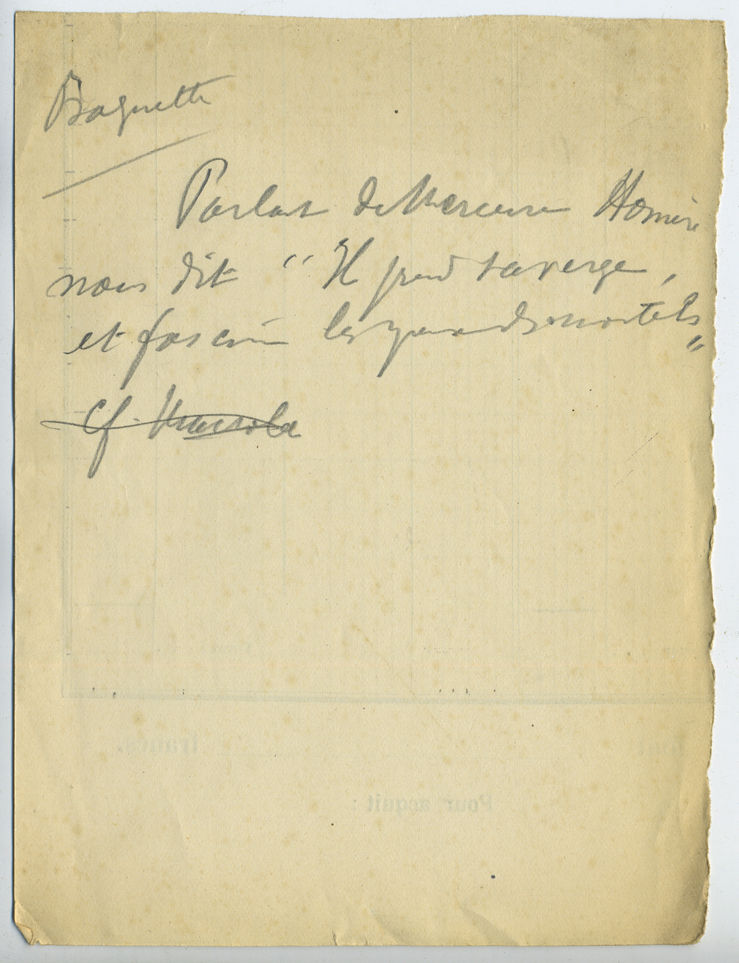 Baguette
Parlant de Mercure Homère
nous dit " Il prend sa verge,
et fascine les yeux des mortels "
Cf.
francs.
Pour acquit :